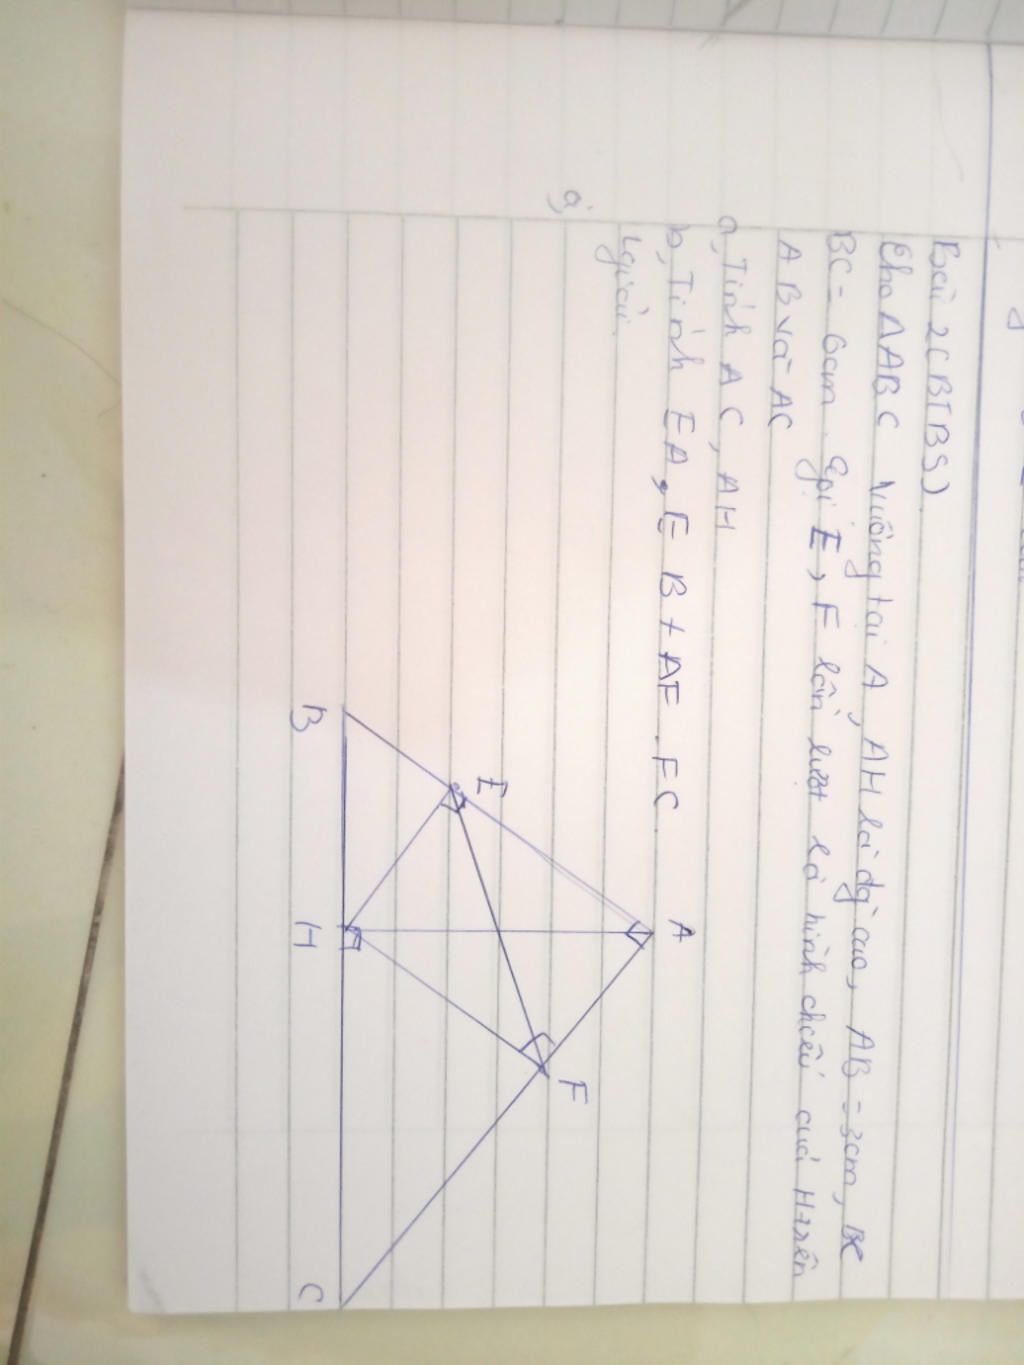 Bài 2 (BTBS)
Cho ΔABC vuông tại A, AH là đg cao, AB = 3cm, BC
BC = 6cm. Gọi E, F lần lượt là hình chiếu của H trên
AB và AC
a, Tính AC, AH
b, Tính EA, EB + AF. FC
Lgiải.
a,
A
E
F
B
H
C